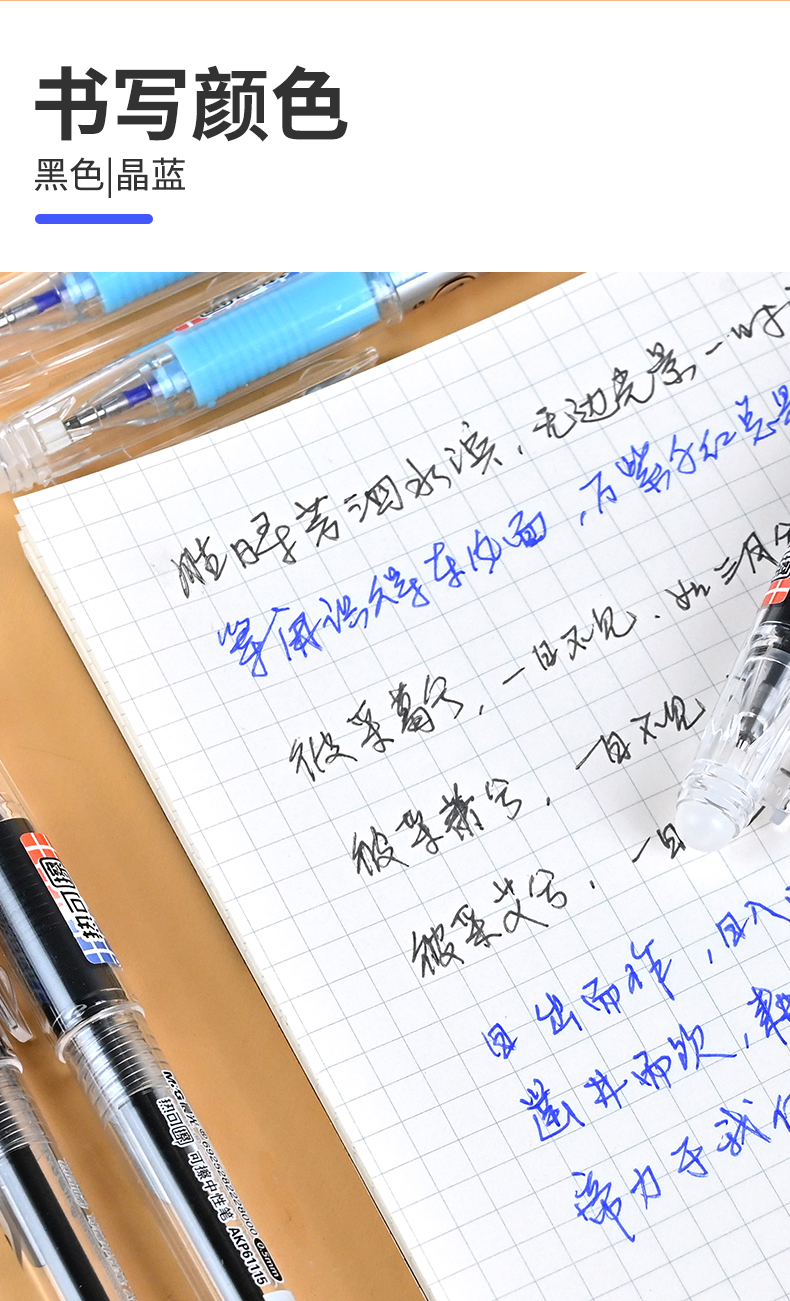 书写颜色
黑色|晶蓝
胜日寻芳泗水滨,无边光景一时
等闲识得东风面,万紫千红总是
彼采葛兮,一日不见,如三月兮
彼采萧兮,一日不见,
彼采艾兮,一日
日出而作,日入
凿井而饮,耕
帝力于我何
热可擦
M&G晨光 6925282228000 0.5mm
热可擦 可擦中性笔 AKP61115